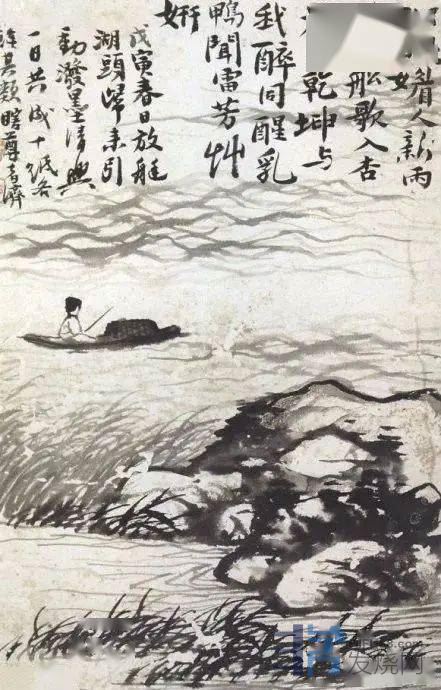 着人新雨
船歌入杏
乾坤与
我醉同醒乳
鴨聞雷芳艸
妍
戊寅春日放艇
湖頭歸来引
動潑墨清興
一日共成十紙各
其類瞎尊者濟
发烧网